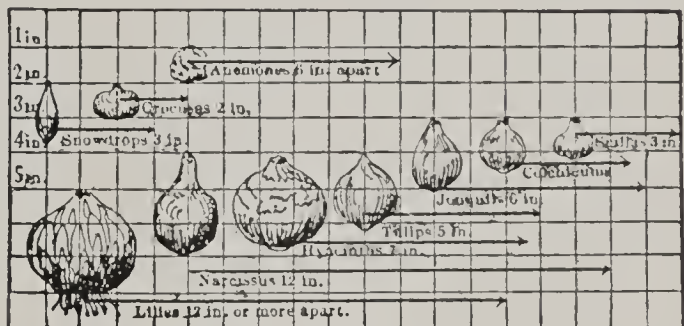 1in.
2in.
Anemones 6 in. apart
3in
Crocuses 2 in.
4in
Snowdrops 3 in.
Scillas 3 in.
5in.
Jonquils 6 in.
Tulips 5 in.
Hyacinths 7 in.
Narcissus 12 in.
Lilies 12 in. or more apart.